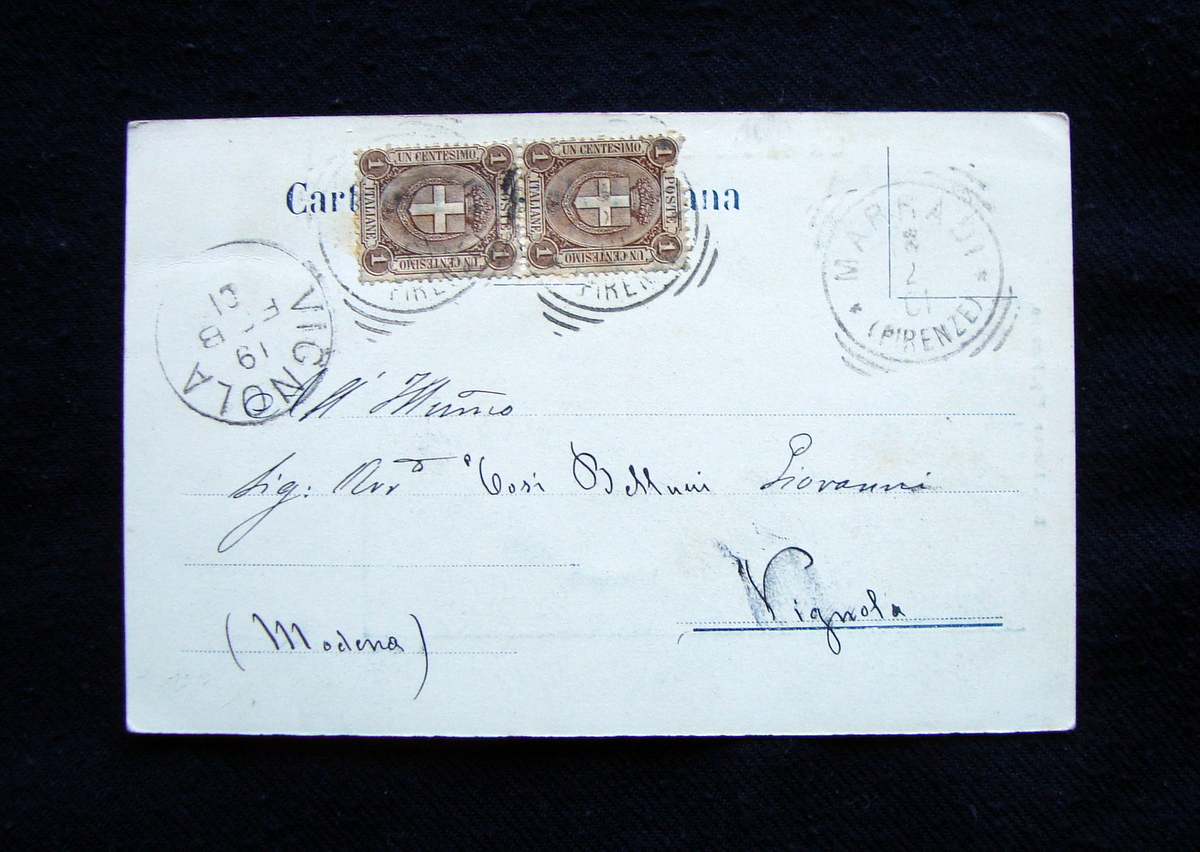 Cart ana
UN CENTESIMO
1 1
ITALIANE POSTE
1 1
UN CENTESIMO
UN CENTESIMO
1 1
ITALIANE POSTE
1 1
UN CENTESIMO
FIREN
FIREN
MARRADI
2
01
(FIRENZE)
VIGNOLA
19
FEB
01
All'
Sig: Tosi Bellucci Giovanni
Vignola
(Modena)